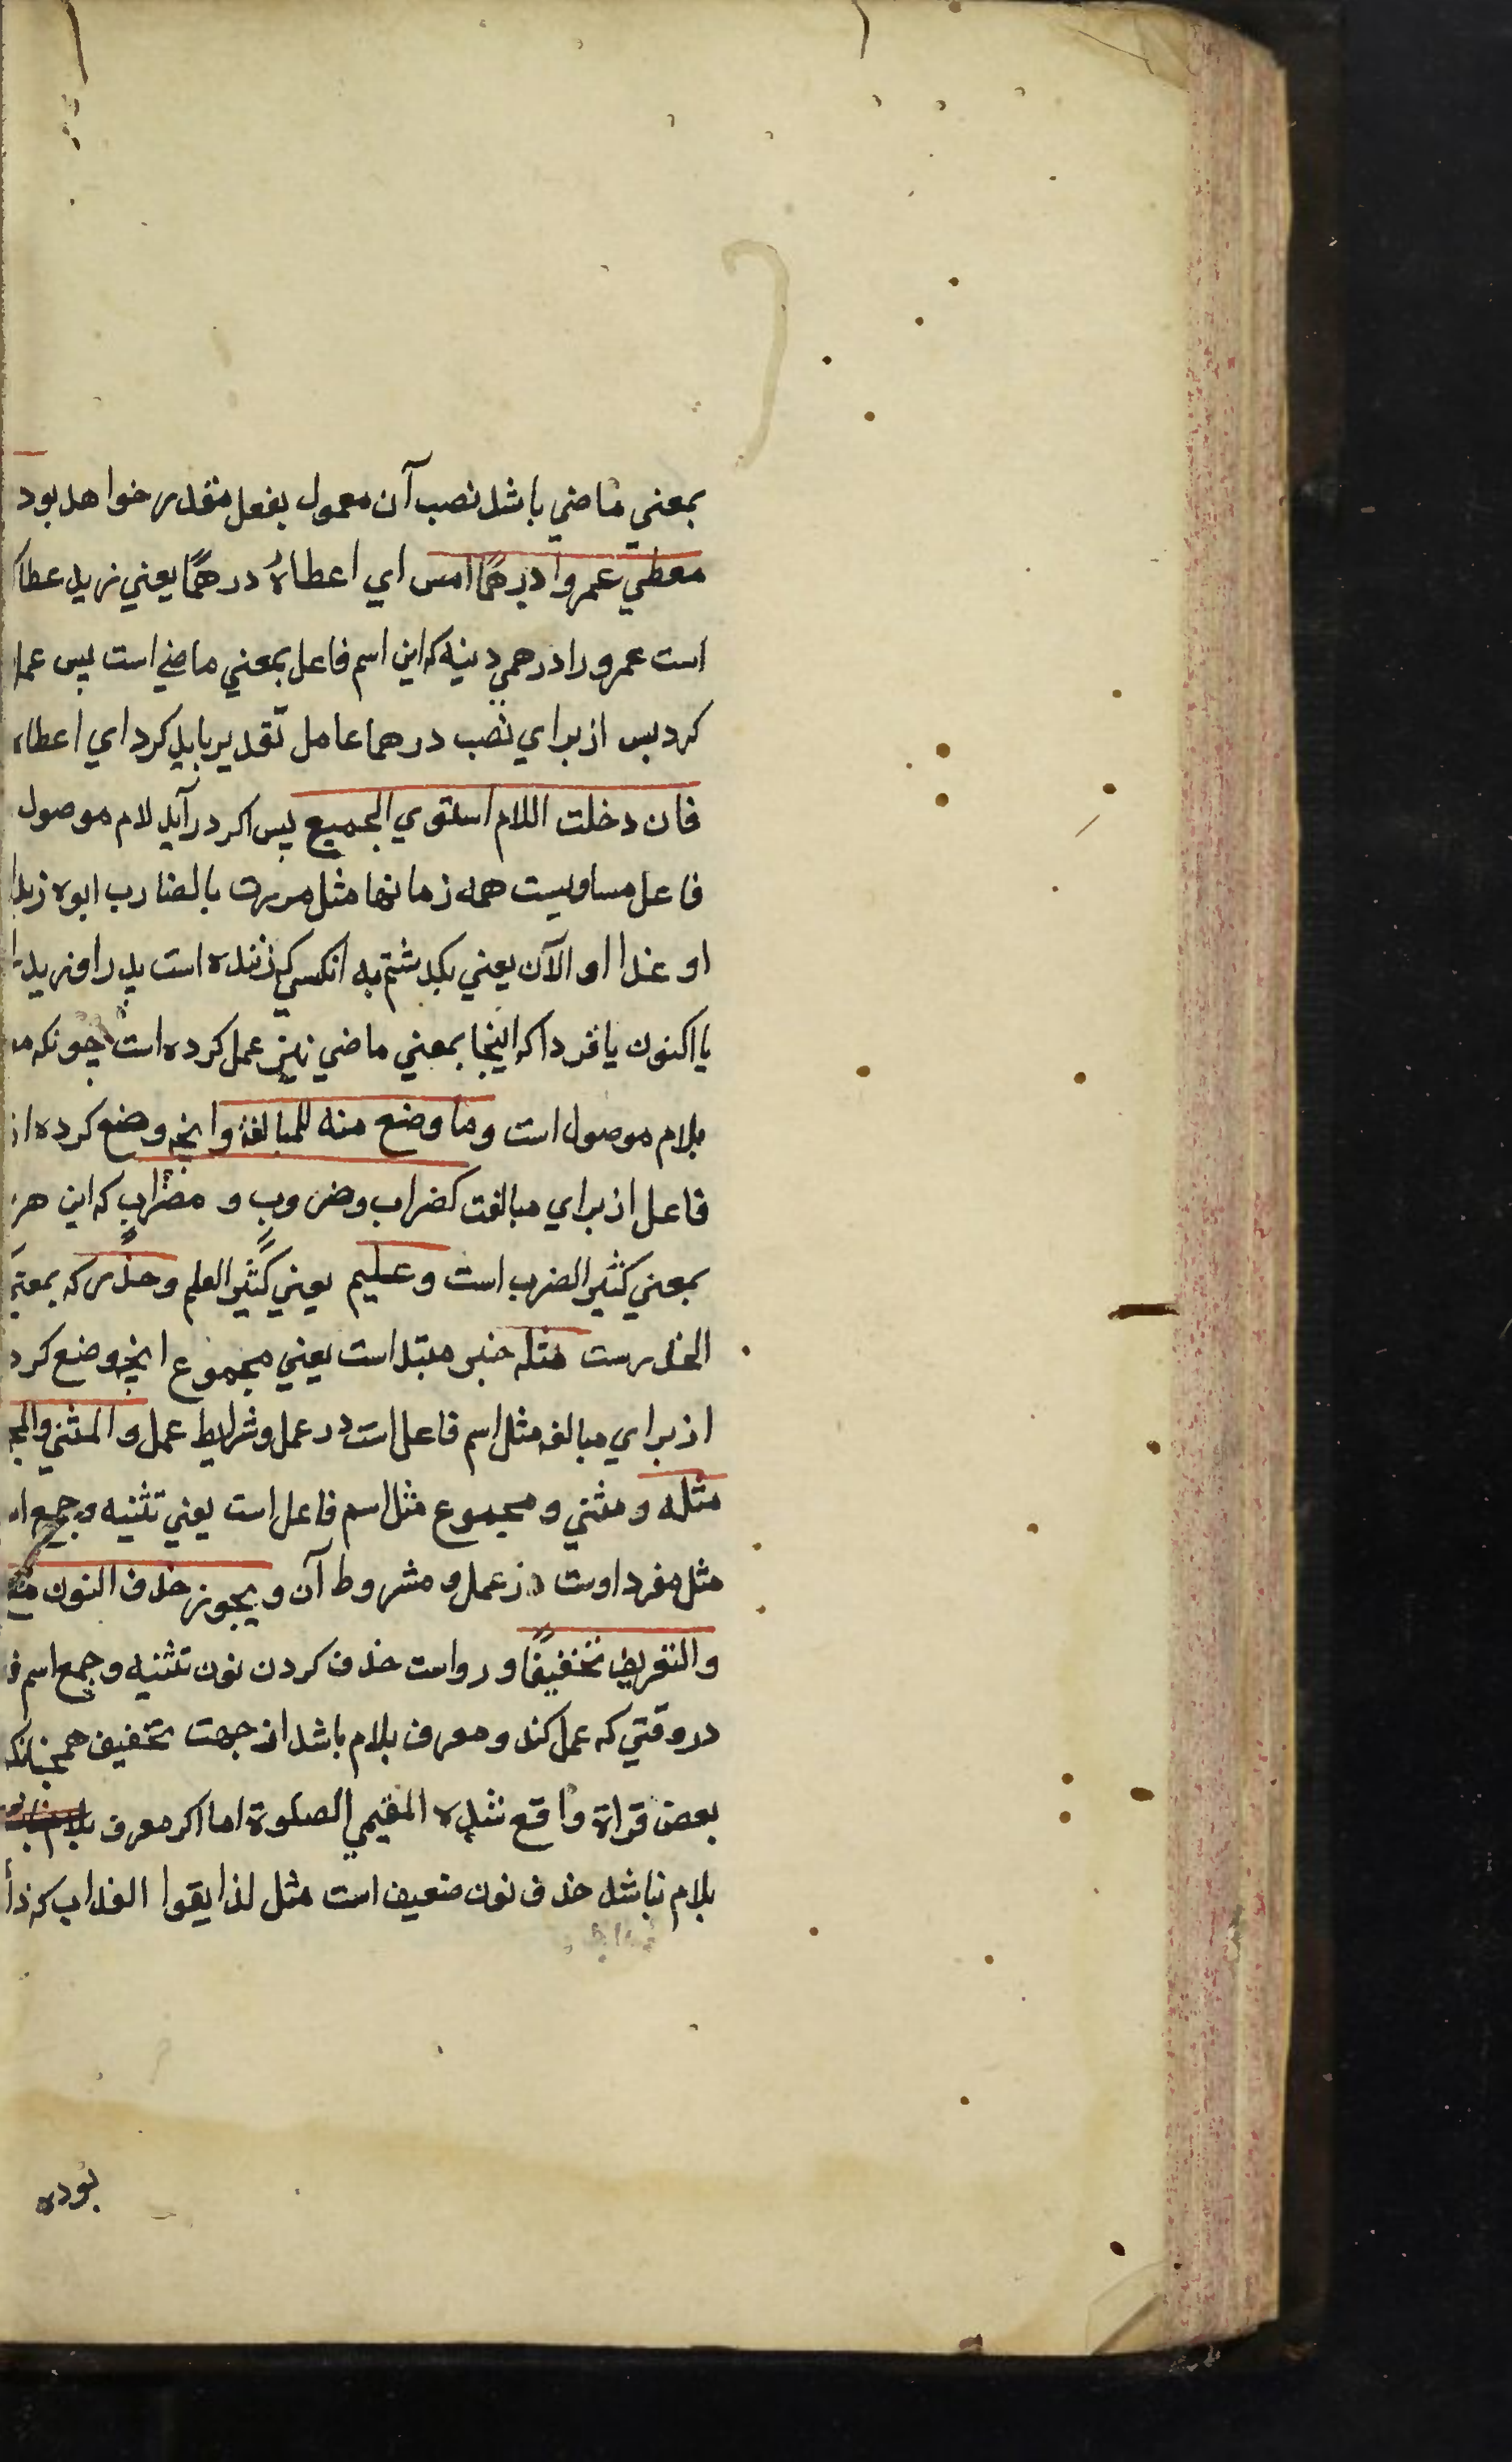 بمعني ماضي باشد نصب آن معمول بفعل مقدر خواهد بود
معطي عمروا درهمًا امس اي اعطاهُ درهمًا يعني زيد عطا
است عمرو را درهمي دينه كه اين اسم فاعل بمعني ماضي است پس عمل
كرد پس از براي نصب درهما عامل تقدير بايد كرد اي اعطاه
فان دخلت اللام استوي الجميع پس اكر در آيد لام موصول
فاعل مساويست همه زمانها مثل مررت بالضارب ابوه زيدا
او غدا او الآن يعني بكدشتم به انكسي كه زننده است پدر او زيد را
يا اكنون يا فردا كه اينجا بمعني ماضي نيز عمل كرده است چونكه
بلام موصول است وما وضع منه للمبالغة وانچه وضع كرده از
فاعل از براي مبالغت كضراب وضروب و مضراب كه اين هر
بمعني كثير الضرب است وعليم يعني كثير العلم وحذر كه بمعني
الحذرست مثله خبر مبتدا است يعني مجموع انچه وضع كرد
از براي مبالغه مثل اسم فاعل است در عمل وشرايط عمل والمثني والمج
مثله و مثني و مجموع مثل اسم فاعل است يعني تثنيه و جمع ا
مثل مفرد اوست در عمل و مشروط آن و يجوز حذف النون
والتعريف تخفيفًا و رواست حذف كردن نون تثنيه و جمع اسم ف
در وقتي كه عمل كند و معرف بلام باشد از جهت تخفيف همچنانكه
بعض قراة واقع شده المقيمي الصلوة اما اكر معرف
بلام نباشد حذف نون ضعيف است مثل لذايقوا العذاب كه ذا
بوده